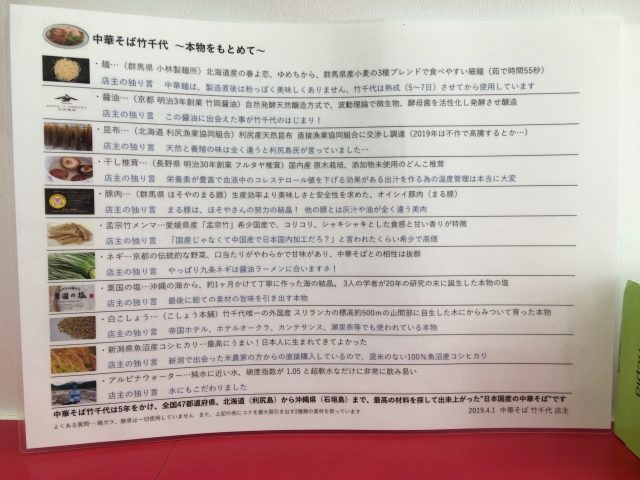 中華そば竹千代 ～本物をもとめて～
・麺…（群馬県 小林製麺所）北海道産の春よ恋、ゆめちから、群馬県産小麦の3種ブレンドで食べやすい細麺（茹で時間55秒）
店主の独り言 中華麺は、製造直後は粉っぽく美味しくありません、竹千代は熟成（5～7日）させてから使用しています
・醤油…（京都 明治3年創業 竹岡醤油）自然発酵天然醸造方式で、波動理論で微生物、酵母菌を活性化し発酵させ醸造
店主の独り言 この醤油に出会えた事が竹千代のはじまり！
・昆布…（北海道 利尻漁業協同組合）利尻産天然昆布 直接漁業協同組合に交渉し調達（2019年は不作で高騰するとか…）
店主の独り言 天然と養殖の味は全く違うと利尻島民が言っていました…
・干し椎茸…（長野県 明治30年創業 フルタヤ椎茸）国内産 原木栽培、添加物未使用のどんこ椎茸
店主の独り言 栄養素が豊富で血液中のコレステロール値を下げる効果がある出汁を作る為の温度管理は本当に大変
・豚肉…（群馬県 ほそやのまる豚）生産効率より美味しさと安全性を求めた、オイシイ豚肉（まる豚）
店主の独り言 まる豚は、ほそやさんの努力の結晶！ 他の豚とは灰汁や油が全く違う美肉
・孟宗竹メンマ…愛媛県産「孟宗竹」希少国産で、コリコリ、シャキシャキとした食感と甘い香りが特徴
店主の独り言 「国産じゃなくて中国産で日本国内加工だろ？」と言われたくらい希少で高価
・ネギ…京都の伝統的な野菜、口当たりがやわらかで甘味があり、中華そばとの相性は抜群
店主の独り言 やっぱり九条ネギは醤油ラーメンに合いますネ！
・粟国の塩…沖縄の海から、約1ヶ月かけて丁寧に作った海の結晶。3人の学者が20年の研究の末に誕生した本物の塩
店主の独り言 最後に総ての素材の旨味を引き出す本物
・白こしょう…（こしょう本舗）竹千代唯一の外国産 スリランカの標高約500mの山間部に自生した木にからみついて育った本物
店主の独り言 帝国ホテル、ホテルオークラ、カンテサンス、瀬里奈等でも使われている本物
・新潟県魚沼産コシヒカリ…最高にうまい！日本人に生まれてきてよかった
店主の独り言 新潟で出会った米農家の方からの直接購入しているので、混米のない100%魚沼産コシヒカリ
・アルピナウォーター…純水に近い水、硬度指数が 1.05 と超軟水なだけに非常に飲み易い
店主の独り言 水にもこだわりました
中華そば竹千代は5年をかけ、全国47都道府県、北海道（利尻島）から沖縄県（石垣島）まで、最高の材料を探して出来上がった"日本国産の中華そば"です
よくある質問… 鶏ガラ、豚骨は一切使用していません また、上記の他にコクを最大限引き出す2種類の素材を使っています
2019.4.1 中華そば 竹千代 店主